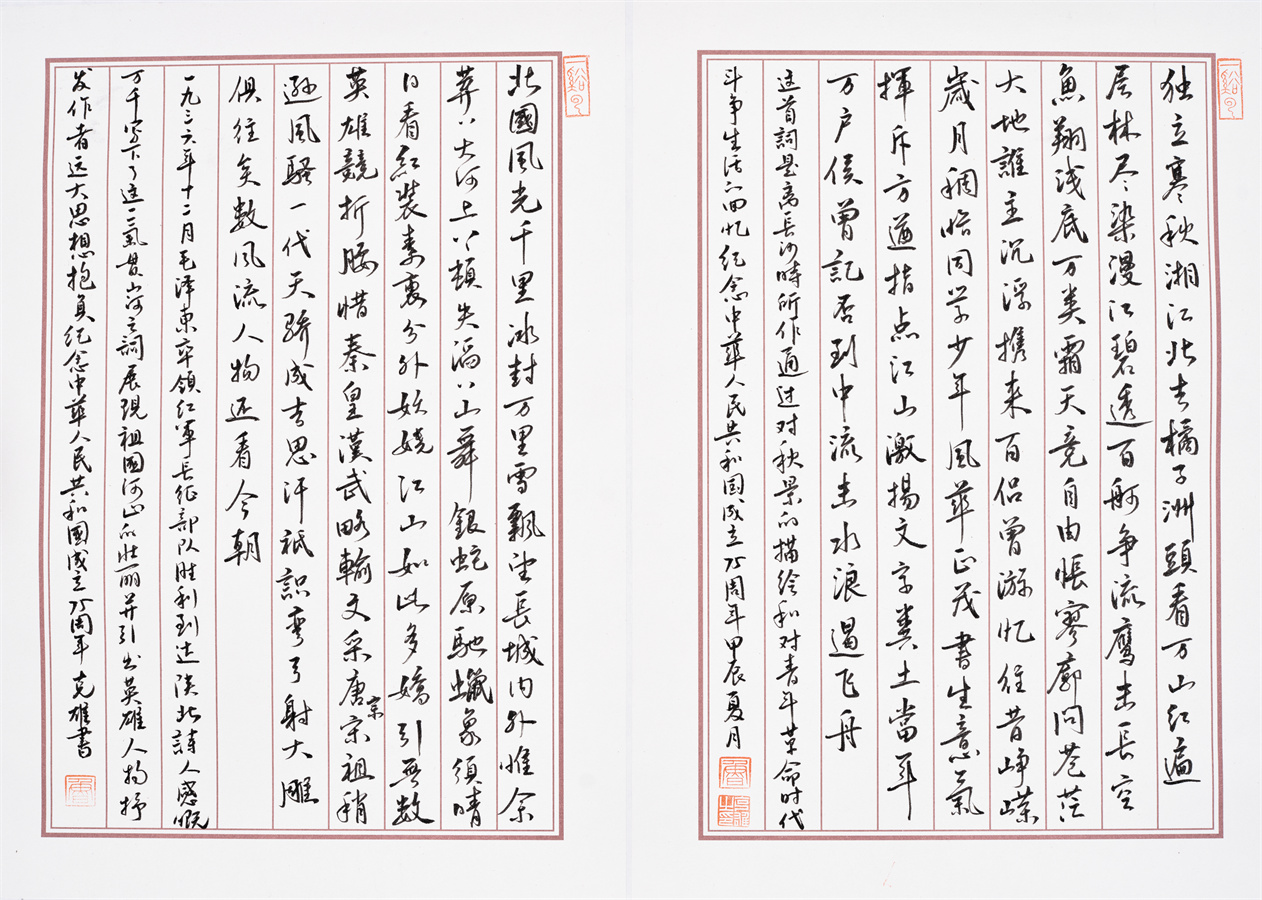 独立寒秋湘江北去橘子洲頭看万山红遍
层林尽染漫江碧透百舸争流鹰击長空
魚翔浅底万类霜天竞自由怅寥廓问苍茫
大地誰主沉浮携来百侣曾游忆往昔峥嵘
歲月稠恰同学少年風華正茂書生意氣
揮斥方遒指点江山激揚文字粪土當年
万户侯曾記否到中流击水浪遏飞舟
这首詞是离長沙時所作通过对秋景的描绘和对青年革命时代
斗争生活的回忆纪念中華人民共和國成立75周年甲辰夏月
北國風光千里冰封万里雪飄望長城内外惟余
莽〻大河上下頓失滔〻山舞銀蛇原馳蠟象須晴
日看红装素裹分外妖娆江山如此多嬌引無数
英雄競折腰惜秦皇漢武略輸文采唐宗宋祖稍
遜風騷一代天骄成吉思汗祗識弯弓射大雕
俱往矣数風流人物还看今朝
一九三六年十二月毛泽東率領红軍長征部队胜利到达陕北詩人感慨
万千写下了这一氣貫山河之詞展現祖国河山的壮丽并引出英雄人物抒
发作者远大思想抱負纪念中華人民共和國成立75周年克雄書